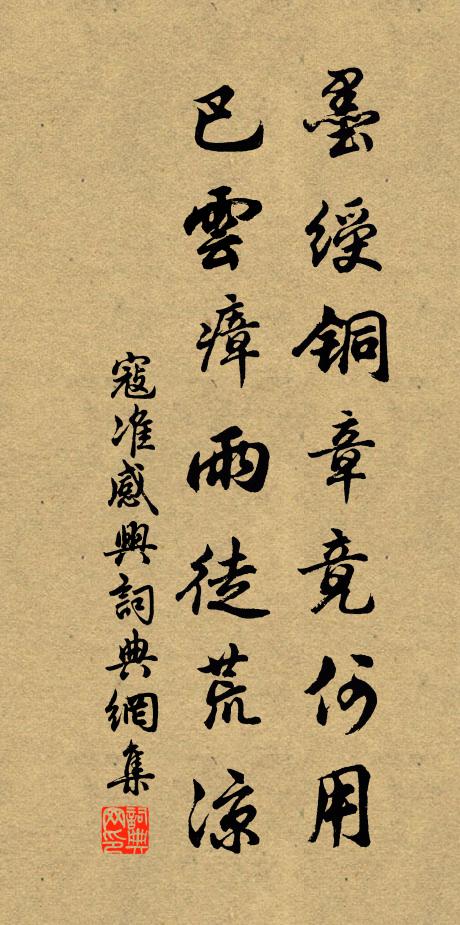 墨綬銅章竟何用
巴雲瘴雨徒荒涼
寇准感興詞典網集
詞典網印